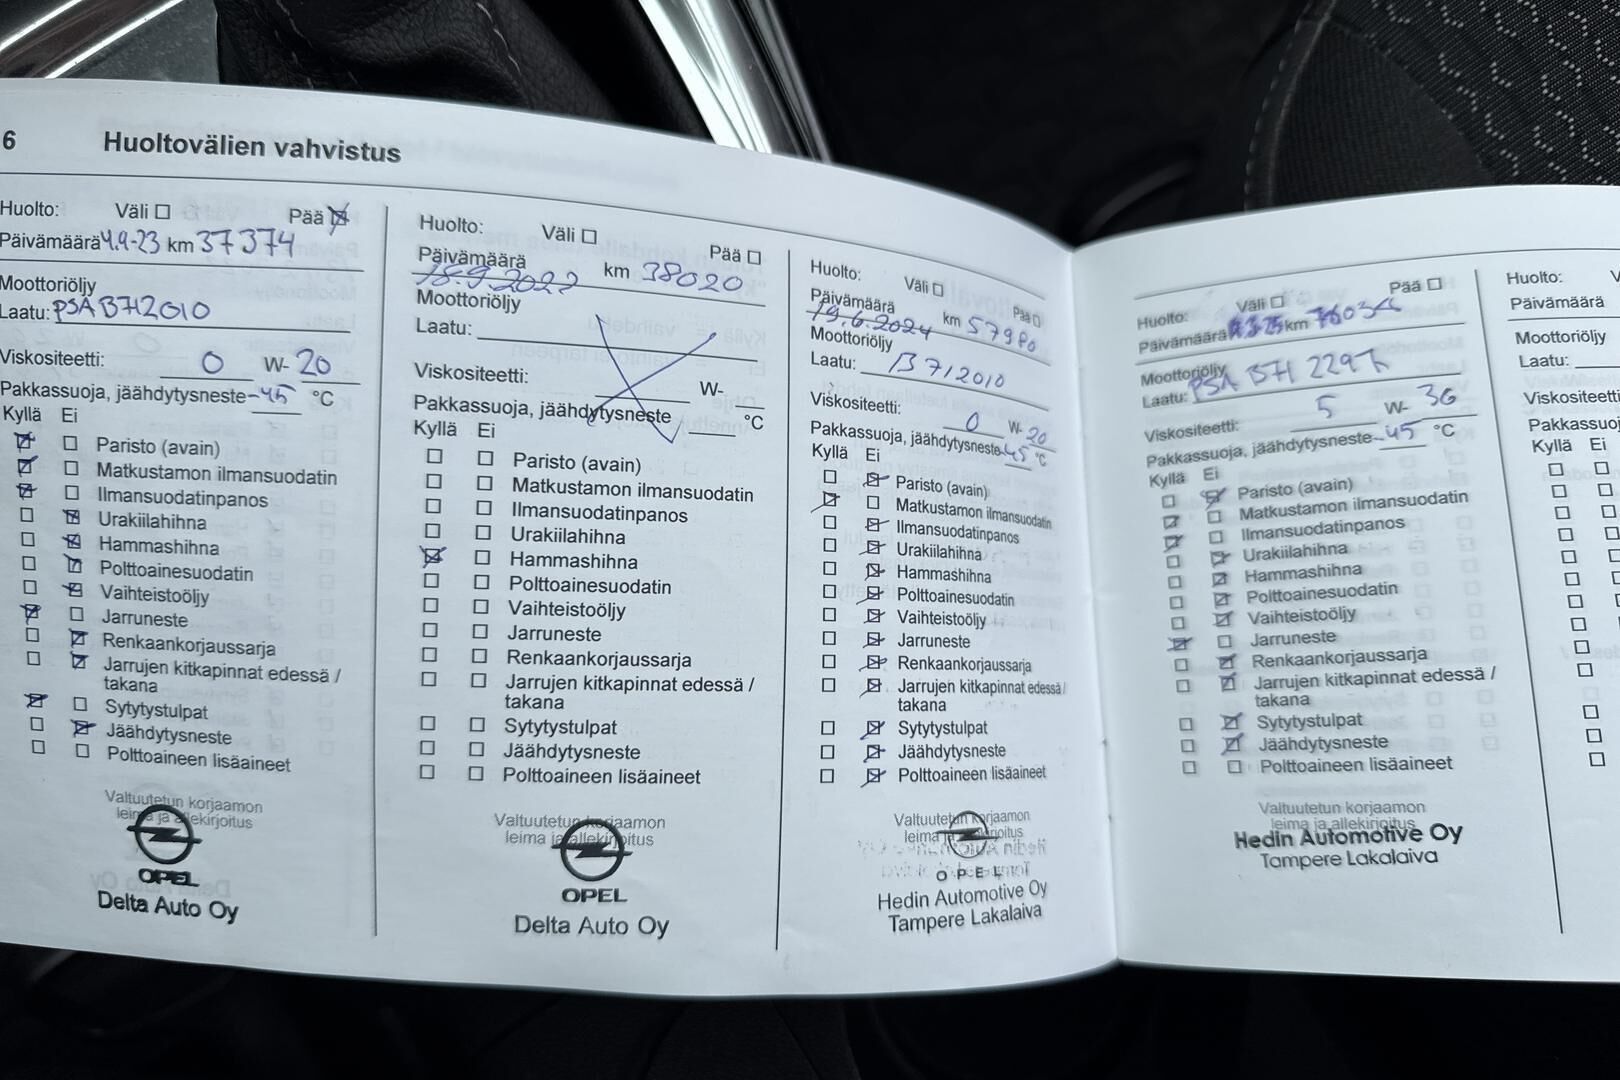 6 Huoltovälien vahvistus
Huolto: Väli Pää
Päivämäärä 4.9-23 km 37374
Moottoriöljy
Laatu: PSA B712010
Viskositeetti: 0 W- 20
Pakkassuoja, jäähdytysneste -45 °C
Kyllä Ei
Paristo (avain)
Matkustamon ilmansuodatin
Ilmansuodatinpanos
Urakiilahihna
Hammashihna
Polttoainesuodatin
Vaihteistoöljy
Jarruneste
Renkaankorjaussarja
Jarrujen kitkapinnat edessä /
takana
Sytytystulpat
Jäähdytysneste
Polttoaineen lisäaineet
Valtuutetun korjaamon
leima ja allekirjoitus
OPEL
Delta Auto Oy
Huolto: Väli Pää
Päivämäärä km 38020
Moottoriöljy
Laatu:
Viskositeetti: W-
Pakkassuoja, jäähdytysneste °C
Kyllä Ei
Paristo (avain)
Matkustamon ilmansuodatin
Ilmansuodatinpanos
Urakiilahihna
Hammashihna
Polttoainesuodatin
Vaihteistoöljy
Jarruneste
Renkaankorjaussarja
Jarrujen kitkapinnat edessä /
takana
Sytytystulpat
Jäähdytysneste
Polttoaineen lisäaineet
Valtuutetun korjaamon
leima ja allekirjoitus
OPEL
Delta Auto Oy
Huolto: Väli Pää
Päivämäärä 19.6.2024 km 57980
Moottoriöljy
Laatu: B712010
Viskositeetti: 0 W- 20
Pakkassuoja, jäähdytysneste -45 °C
Kyllä Ei
Paristo (avain)
Matkustamon ilmansuodatin
Ilmansuodatinpanos
Urakiilahihna
Hammashihna
Polttoainesuodatin
Vaihteistoöljy
Jarruneste
Renkaankorjaussarja
Jarrujen kitkapinnat edessä /
takana
Sytytystulpat
Jäähdytysneste
Polttoaineen lisäaineet
Valtuutetun korjaamon
leima ja allekirjoitus
OPEL
Hedin Automotive Oy
Tampere Lakalaiva
Huolto: Väli Pää
Päivämäärä km
Moottoriöljy
Laatu: PSA B71 2297
Viskositeetti: 5 W- 30
Pakkassuoja, jäähdytysneste -45 °C
Kyllä Ei
Paristo (avain)
Matkustamon ilmansuodatin
Ilmansuodatinpanos
Urakiilahihna
Hammashihna
Polttoainesuodatin
Vaihteistoöljy
Jarruneste
Renkaankorjaussarja
Jarrujen kitkapinnat edessä /
takana
Sytytystulpat
Jäähdytysneste
Polttoaineen lisäaineet
Valtuutetun korjaamon
leima ja allekirjoitus
Hedin Automotive Oy
Tampere Lakalaiva
Huolto: V
Päivämäärä
Moottoriöljy
Laatu:
Viskositeetti
Pakkassuoj
Kyllä Ei